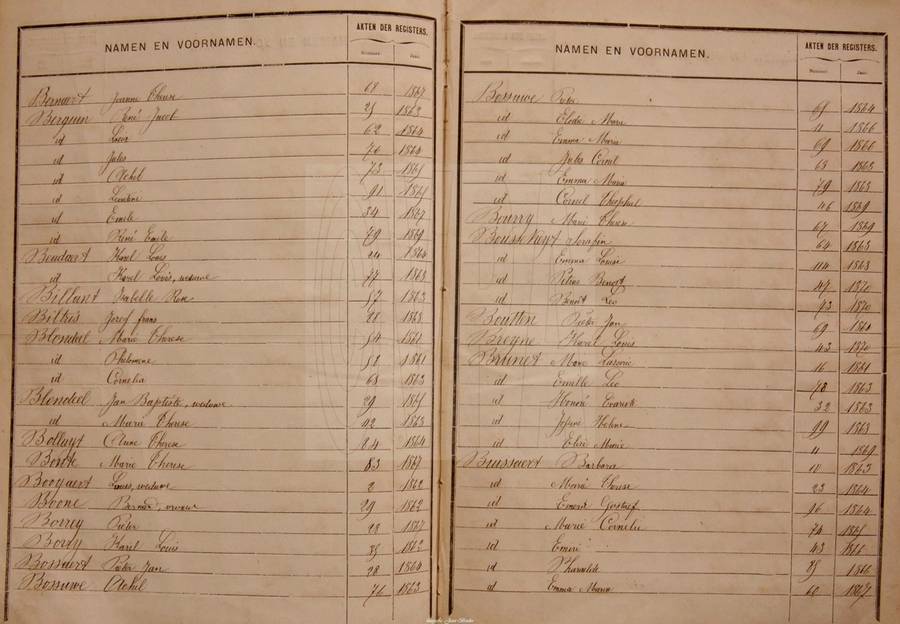 NAMEN EN VOORNAMEN.
AKTEN DER REGISTERS.
Nummer. Jaar.
Bernaert Jeanne Therese 68 1867
Berquin René Jacob 25 1863
id Louis 62 1864
id Jules 70 1864
id Achiel 73 1865
id 91 1865
id Emile 34 1867
id René Emile 79 1869
Beudaert Karel Louis 24 1864
id Karel Louis, weduwe 77 1863
Billiant Isabelle Rose 57 1863
Bittris Josef frans 28 1865
Blondeel Marie Therese 54 1861
id Philomene 58 1861
id Cornelia 68 1863
Blondeel Jan Baptiste, weduwe 29 1865
id Maria Therese 42 1863
Bolluyt Anne Therese 84 1864
Bonte Marie Therese 83 1867
Booyaert Louis, weduwe 2 1862
Boone 29 1862
Borrey Pieter 22 1867
Borry Karel Louis 35 1862
Bossaert Pieter Jan 28 1864
Bossuwe Achil 76 1863
NAMEN EN VOORNAMEN.
AKTEN DER REGISTERS.
Nummer. Jaar.
Bossuwe Pieter 65 1864
id Elodie Marie 11 1866
id Emma Marie 69 1866
id Jules Cornil 68 1863
id Emma Maria 79 1863
id Cornil Theophiel 46 1869
Bourry Marie Therese 67 1869
Serafin 64 1863
id Emma Louise 114 1863
id Petrus Benoit 47 1870
id Benoit Leo 73 1870
Boutten Pieter Jan 69 1861
Breyne Karel Louis 43 1870
Brunet Marie 16 1861
id Emille Leo 78 1863
id Honoré Evariste 32 1863
id Helene 99 1863
id Elise Marie 11 1869
Bussaert Barbara 10 1863
id Marie Therese 23 1864
id Emeré Gustaf 96 1864
id Marie Cornelie 74 1865
id Emeré 43 1866
id Pharailde 85 1866
id Emma Maria 60 1867